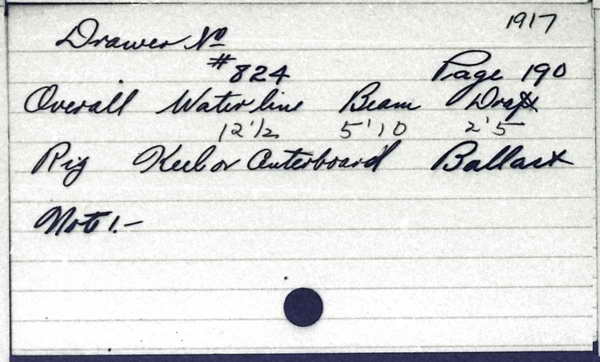 1917
Drawer No
#824 Page 190
Overall Waterline Beam Draft
12'½ 5'10 2'5
Rig Keel or Centerboard Ballast
Note:-